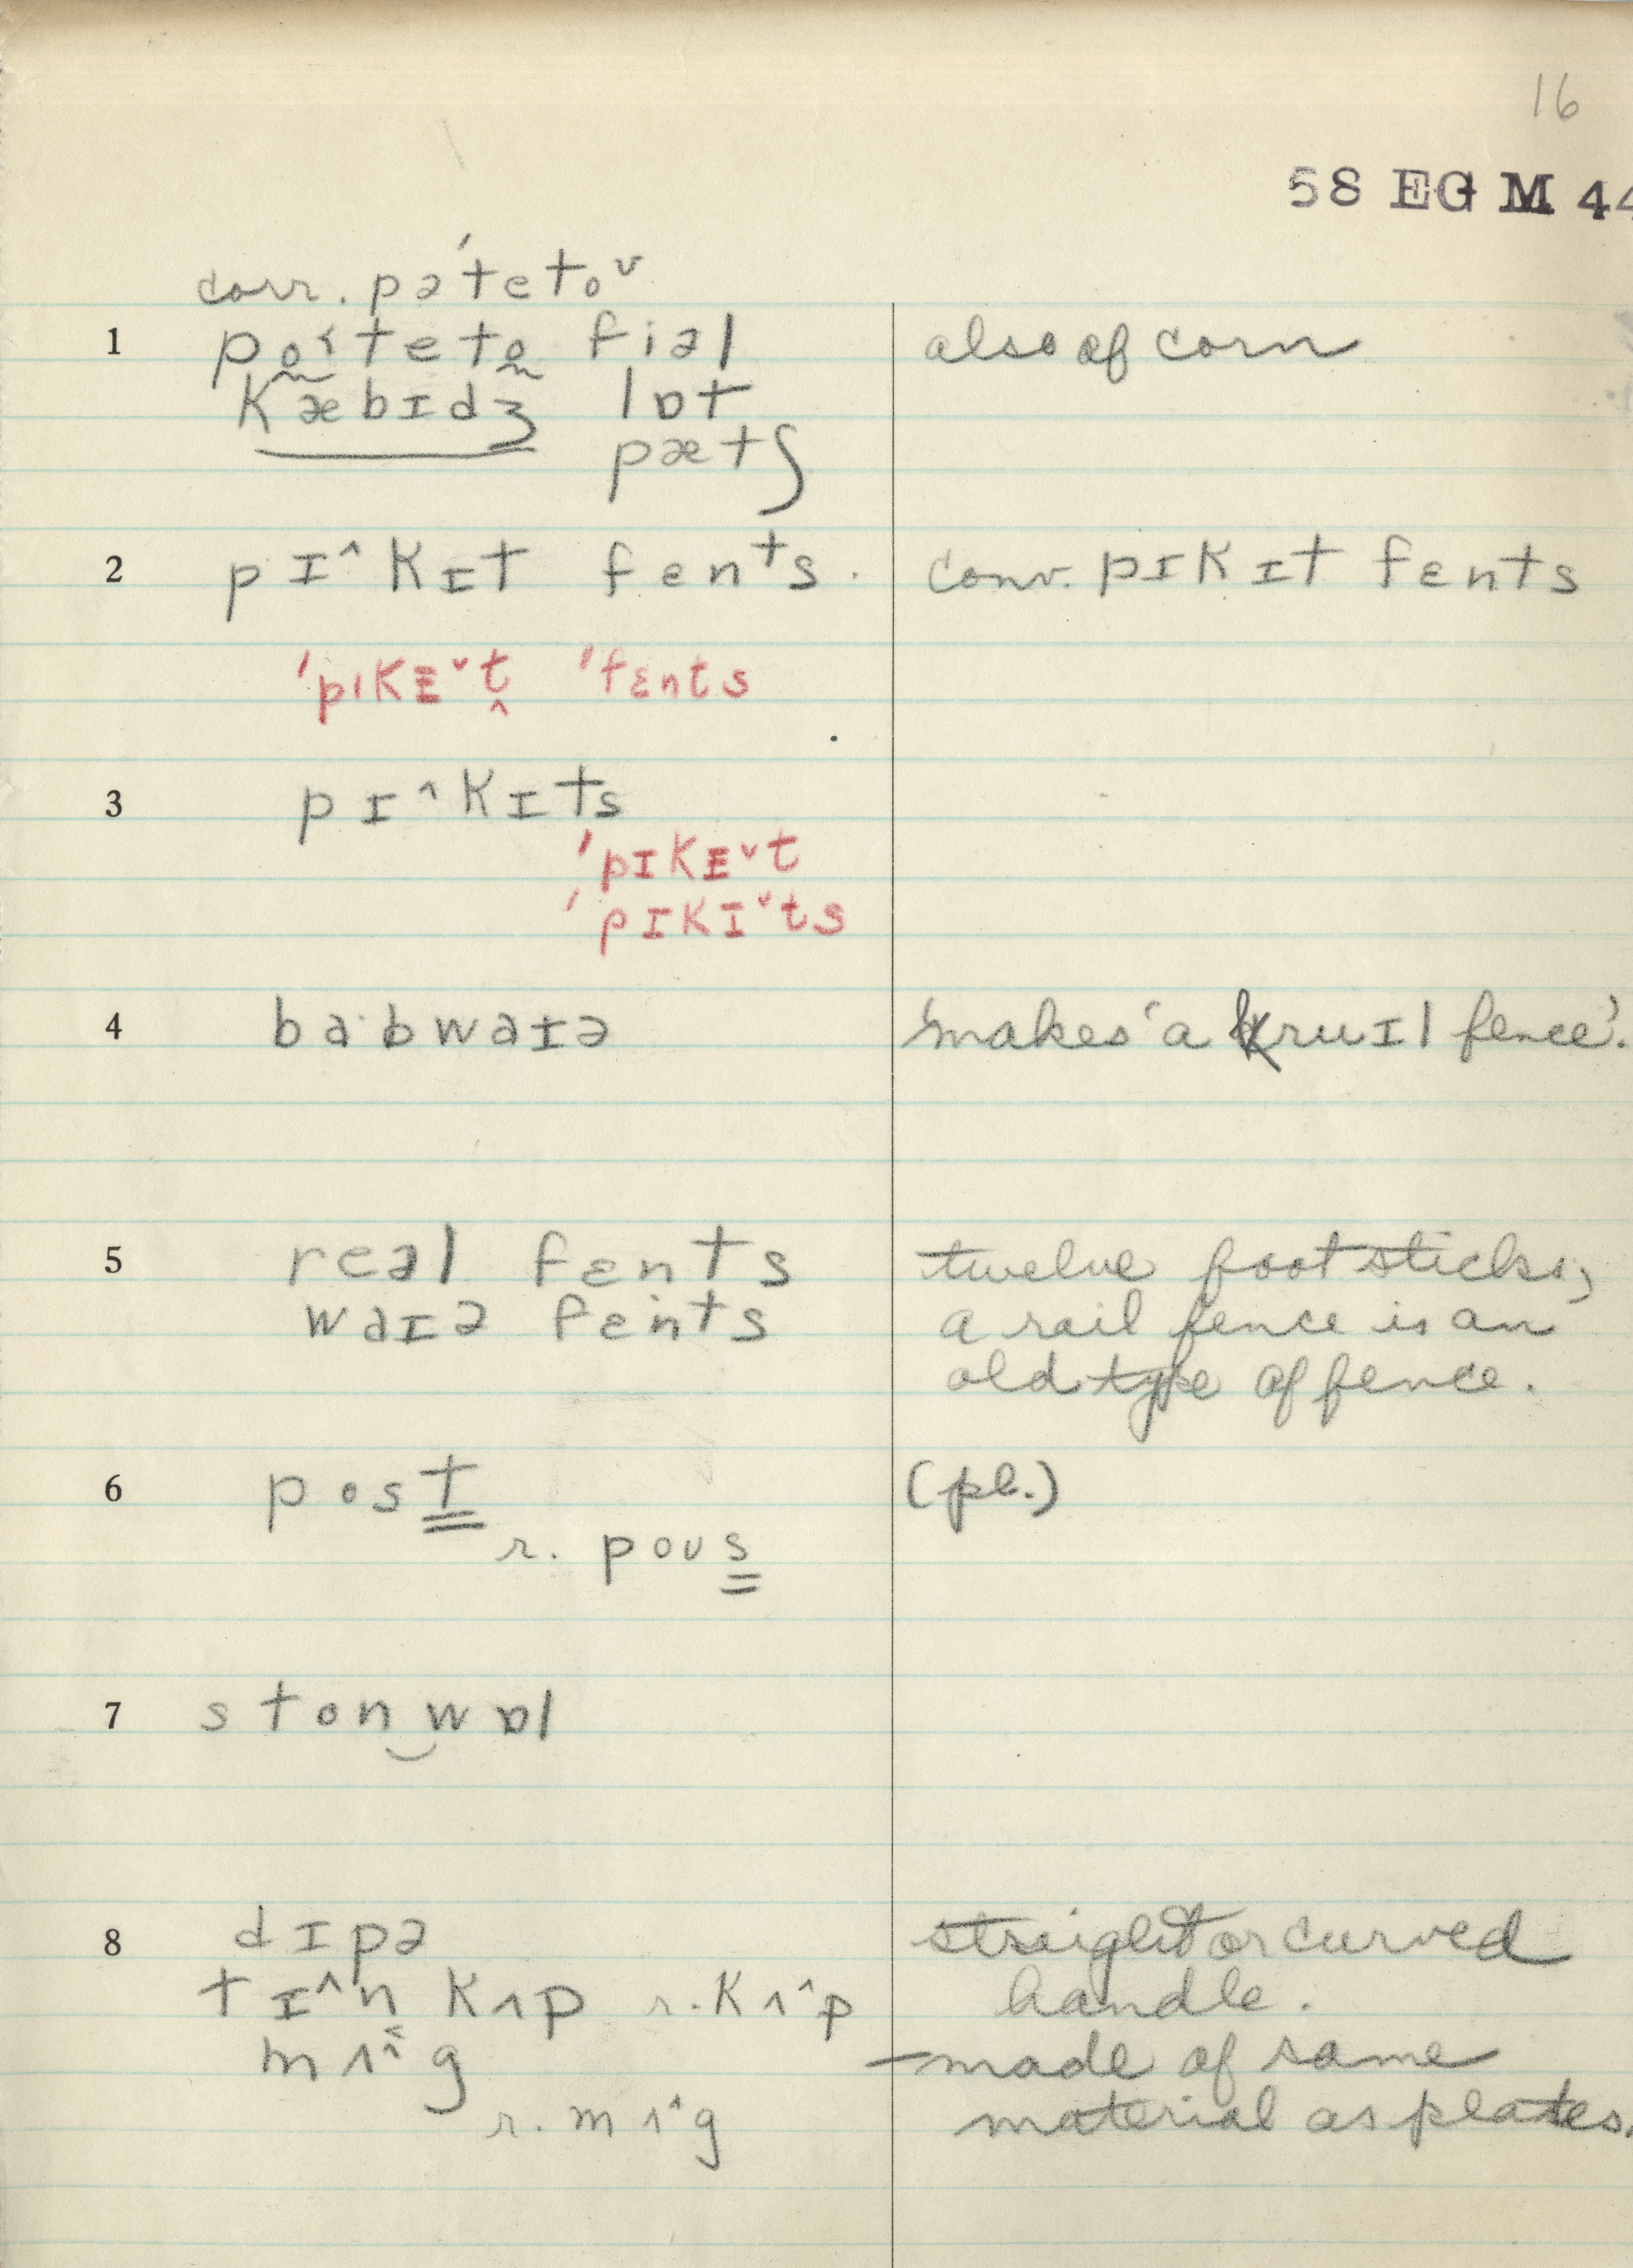 16
58 EG M 44
corr. pə'teto˅
1 po˂teto fiəl also of corn
kæbɪdʒ lɒt
pætʃ
2 pɪ^kɪt fents. conv. pɪkɪt fents
'pɪkɪ˅t 'fɛnts
3 pɪ^kɪts
'pɪkɪ˅t
'pɪkɪ˅ts
4 ba·bwaɪə 'makes' a kruɪl fence'.
5 reəl fɛnts twelve foot sticks;
waɪə fents a rail fence is an
old type of fence.
6 post (pl.)
r. poʊs
7 ston‿wɒl
8 dɪpə straight or curved
tɪ^n kʌp r. kʌ^p handle.
mʌ^g — made of same
r. mʌ^g material as plates.